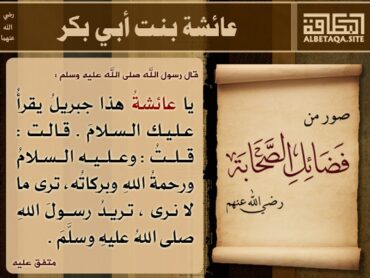 رضي
الله
عنهما
عائشة بنت أبي بكر
البطاقة
ALBETAQA.SITE
قال رسول الله صلى الله عليه وسلم :
يا عائشةُ هذا جبريلُ يقرأُ
عليك السلامَ . قالت :
قلتُ : وعليه السلامُ
ورحمةُ اللهِ وبركاتُه، ترى ما
لا نرى ، تريدُ رسولَ اللهِ
صلى اللهُ عليهِ وسلَّمَ .
متفق عليه
صور من
فضائل الصحابة
رضي الله عنهم